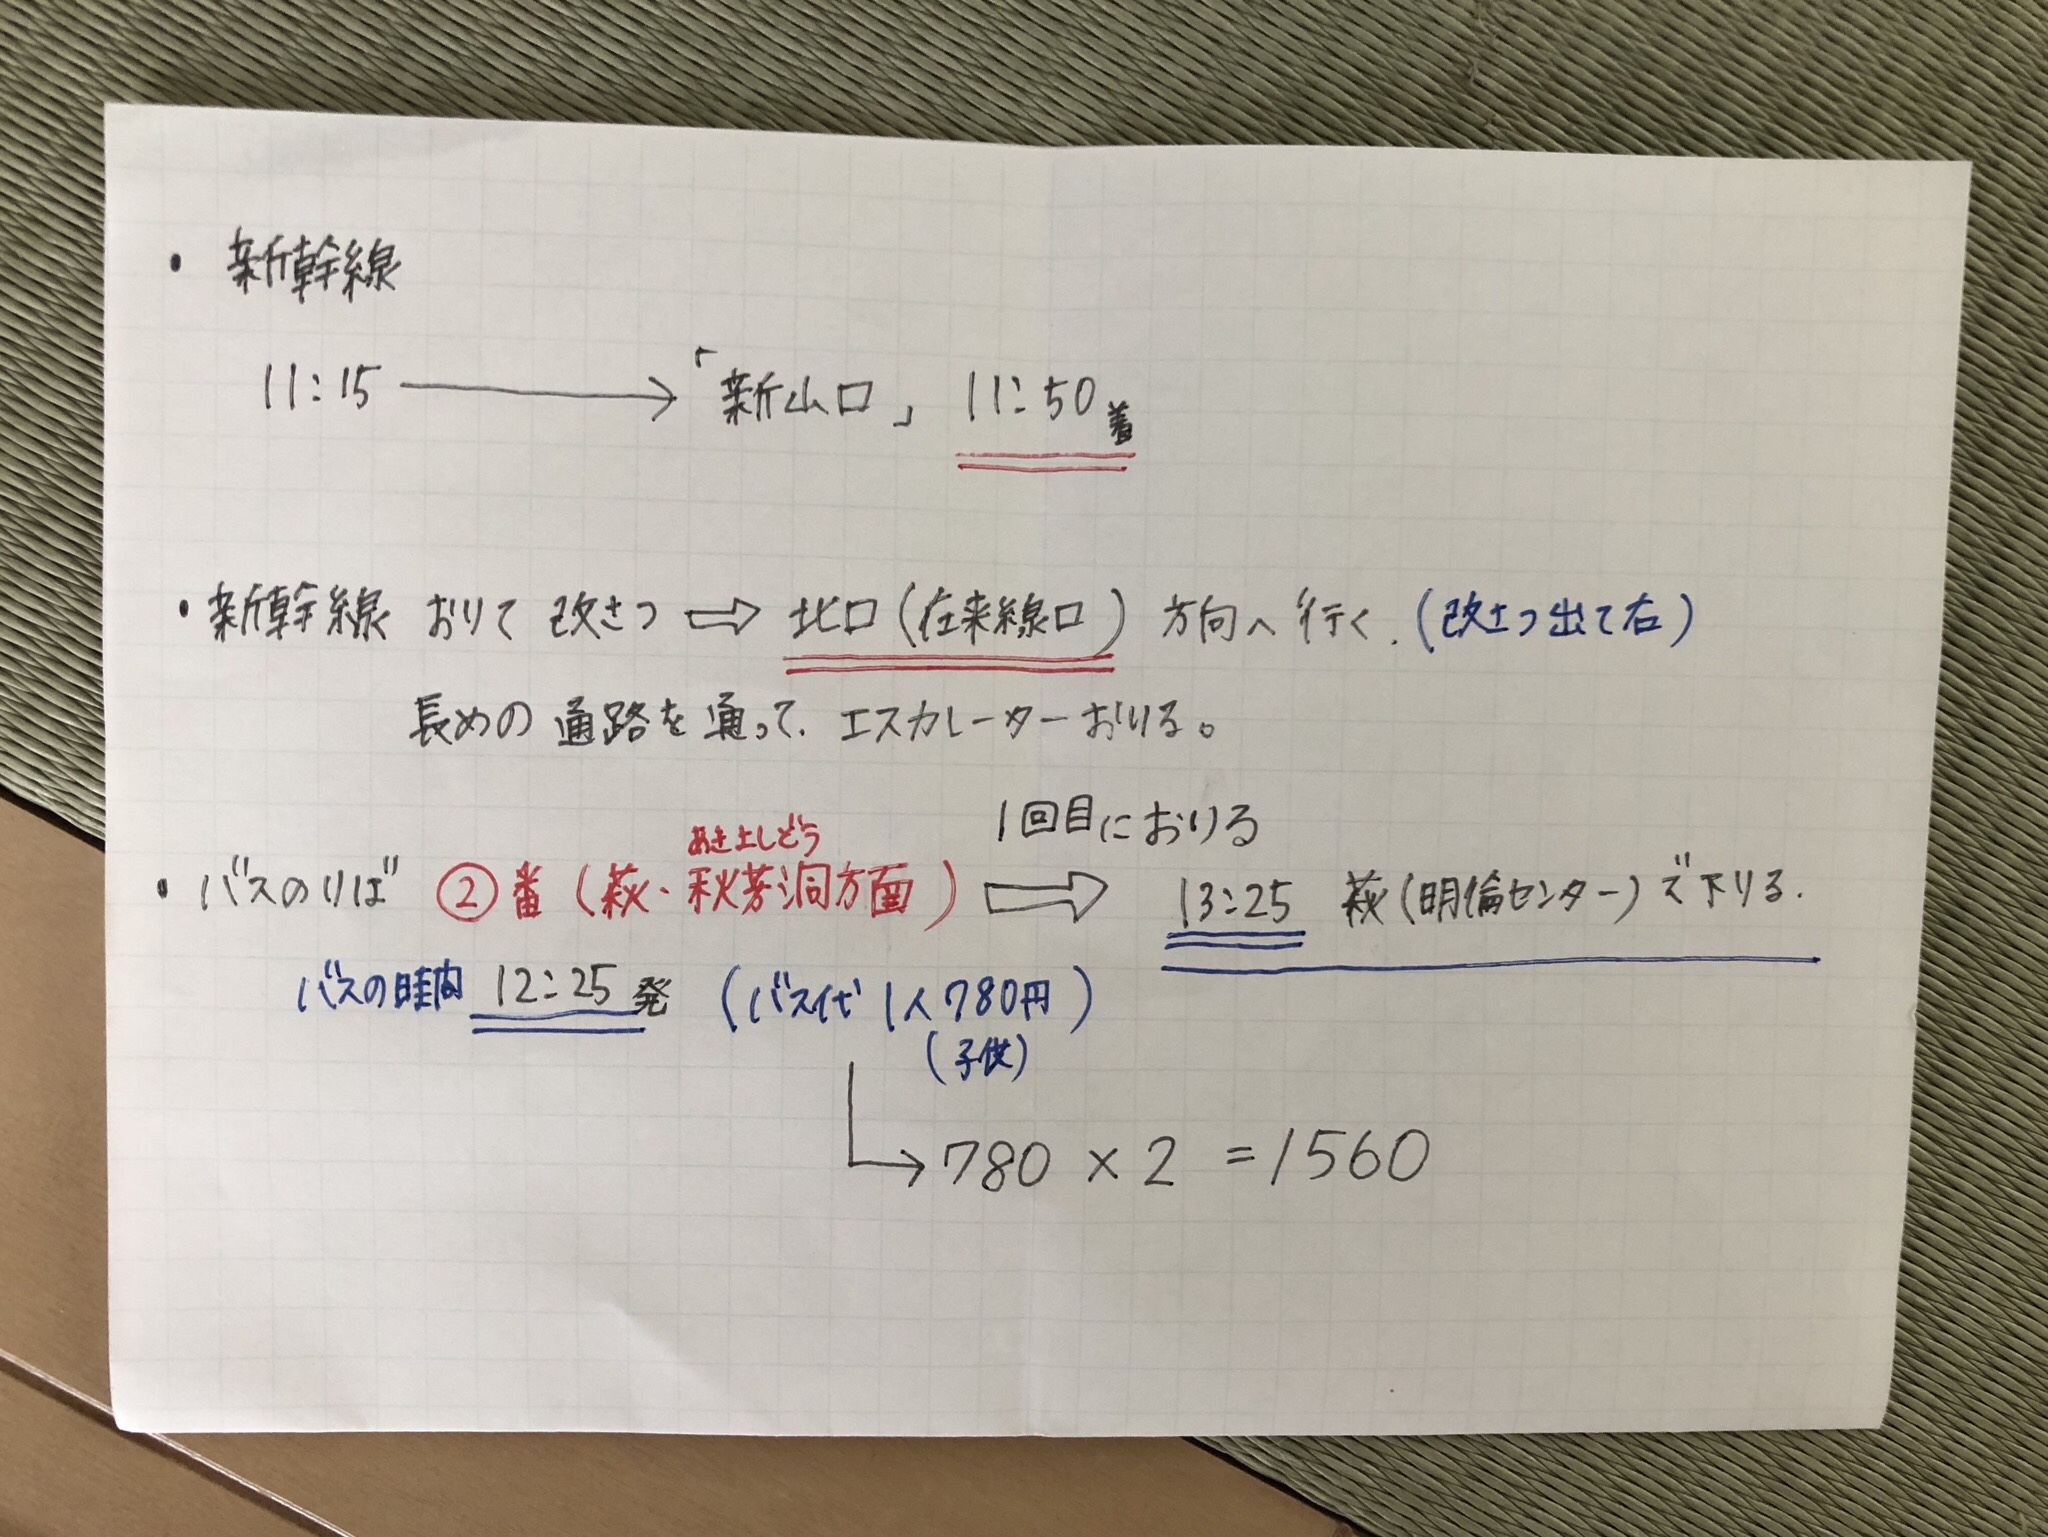 ・新幹線
11:15 → 「新山口」 11:50着
・新幹線 おりて 改さつ ⇨ 北口(在来線口) 方向へ行く. (改さつ出て右)
長めの通路を通って、エスカレーターおりる。
1回目におりる
あきよしどう
・バスのりば ②番 (萩・秋芳洞方面) ⇨ 13:25 萩(明倫センター)で下りる.
バスの時間 12:25発 (バス代 1人780円)
(子供)
→780 × 2 = 1560